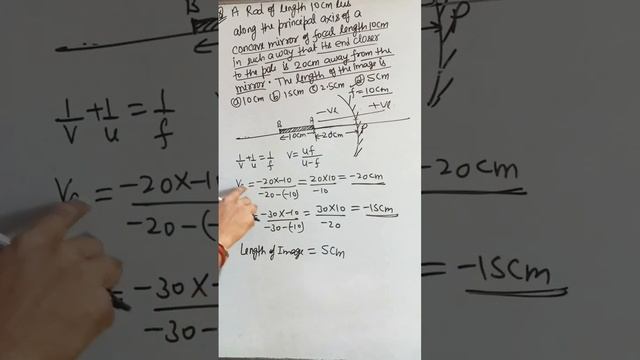 A Rod of length 10cm lies
along the principal axis of a
concave mirror of focal length 10cm
in such a way that its end closer
to the pole is 20cm away from the
mirror. The length of the image is
ⓐ 10cm ⓑ 15cm ⓒ 2.5cm ⓓ 5cm
f = 10cm
-ve +ve
B A P
10cm 20cm
1/v + 1/u = 1/f V = uf/u-f
= -20×-10/-20-(-10) = 20×10/-10 = -20cm
= -30×-10/-30-(-10) = 30×10/-20 = -15cm
Length of Image = 5cm